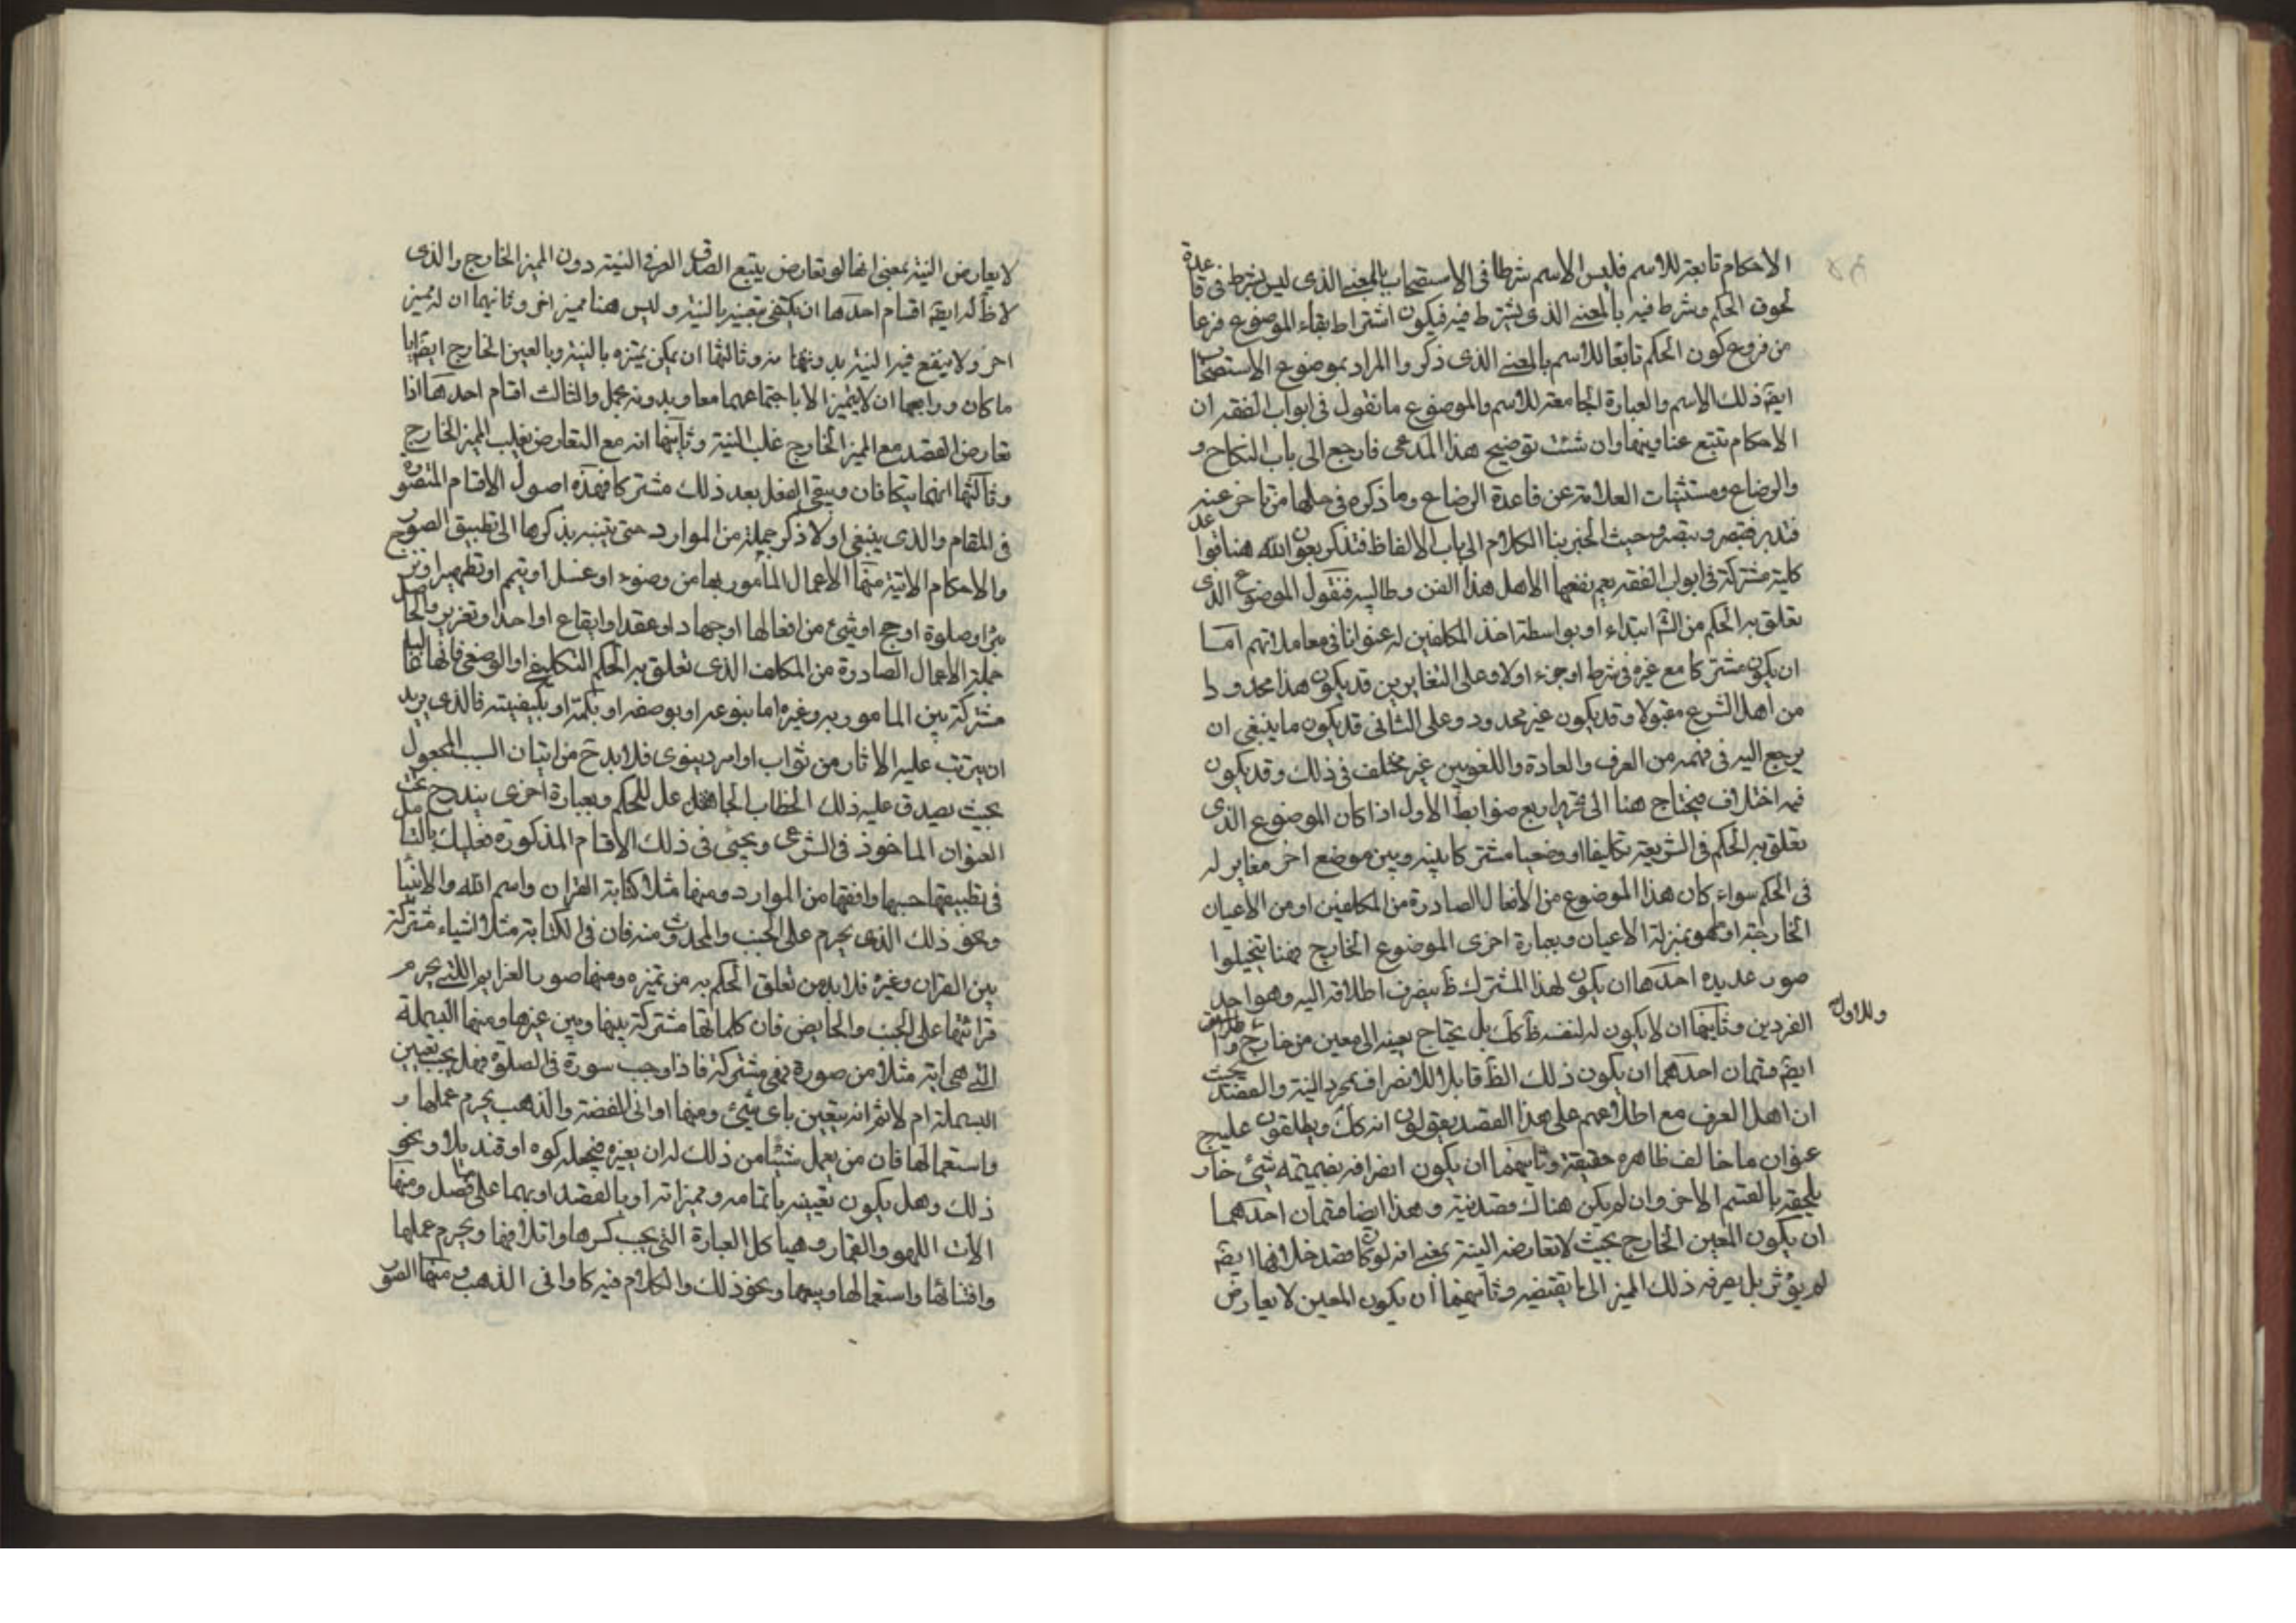 الاحكام تابعة للاسم فليس الاسم شرطا فى الاستصحاب بالمعنى الذى ليس بشرط فى قاعدة
لحوق الحكم وشرط فيه بالمعنى الذى يشترط فيه فيكون اشتراط بقاء الموضوع فرعا
من فروع كون الحكم تابعا للاسم بالمعنى الذى ذكر والمراد بموضوع الاستصحاب
ايضه ذلك الاسم والعبارة الجامعة للاسم والموضوع ما نقول فى ابواب الفقه ان
الاحكام تتبع عناوينها وان شئت توضيح هذا المدعى فارجع الى باب النكاح و
والرضاع ومستثنيات العلامة عن قاعدة الرضاع وما ذكره فى حلها من تاخر عنه
فتدبر وتبصر وحيث انجر بنا الكلام الى باب الالفاظ فتذكر بعون الله هنا قواعد
كلية مشتركة فى ابواب الفقه يعم نفعها الاهل هذا الفن وطالبيه فنقول الموضوع الذى
تعلق به الحكم من الشم ابتداء او بواسطة اخذ المكلفين له عنوانا فى معاملاتهم اما
ان يكون مشتركا مع غيره فى شرط او جزء اولا وعلى التغايرين قد يكون هذا محدودا
من اهل الشرع مقبولا وقد يكون غير محدود وعلى الثانى قد يكون ما ينبغى ان
يرجع اليه فى فهمه من العرف والعادة واللغويين غير مختلف فى ذلك وقد يكون
فيه اختلاف فيحتاج هنا الى تحرير اربع ضوابط الاول اذا كان الموضوع الذى
تعلق به الحكم فى الشريعة تكليفا او وضعيا مشتركا بينه وبين موضع اخر مغاير له
فى الحكم سواء كان هذا الموضوع من الافعال الصادرة من المكلفين او من الاعيان
الخارجة او ما هو بمنزلة الاعيان وبعبارة اخرى الموضوع الخارج فهنا يتخيلوا
صور عديده احدها ان يكون لهذا المشترك ظ ينصرف اطلاقه اليه وهو احد
الفردين وثانيها ان لا يكون له لنفسه ظ كك بل يحتاج تعينه الى معين من خارج
وللاول
ايضه قسمان احدهما ان يكون ذلك الظ قابلا للانصراف بمجرد النية والقصد بحيث
ان اهل العرف مع اطلاعهم على هذا القصد يقولون انه كك ويطلقون عليه ح
عنوان ما خالف ظاهره حقيقة وثانيهما ان يكون انصرافه بضميمة شئ خار
يلحقه بالقسم الاخر وان لم يكن هناك قصد نية وهذا ايضا قسمان احدهما
ان يكون المعين الخارج بحيث لا تعارضه النية بمعنى انه لو كان قصد خلافها ايضه
لم يؤثر بل يصرفه ذلك المميز الى ما يقتضيه وثانيهما ان يكون المعين لا يعارض
لا يعارض النية بمعنى انها لو تعارض يتبع الصدق العرفى النية دون المميز الخارج والذى
لا ظ له ايضه اقسام احدها ان يكتفى بتعينه بالنية وليس هنا مميز اخر وثانيها ان له مميز
اخر ولا ينفع فيه النية بدونها وثالثها ان يمكن تميزه بالنية وبالعين الخارج ايضه ايا
ما كان ورابعها ان لا يتميز الا باجتماعهما معا وبدونه مجمل والثالث اقسام احدها اذا
تعارض القصد مع المميز الخارج غلب النية وثانيها انه مع التعارض يغلب المميز الخارج
وثالثها انهما يتكافان ويبقى الفعل بعد ذلك مشتركا فهذه اصول الاقسام المتصورة
فى المقام والذى ينبغى اولا ذكر جملة من الموارد حتى يتنبه بذكرها الى تطبيق الصور
والاحكام الاتية منها الاعمال المأمور بها من وضوء او غسل او تيمم او تطهير او نزح
بئر او صلوة او حج او شئ من افعالها او جهاد او عقد او ايقاع او احد او تعزير والحاصل
جملة الاعمال الصادرة من المكلف الذى تعلق به الحكم التكليفى او الوضعى فانها غالبا
مشتركة بين المامور به وغيره اما بنوعه او بوصفه او بكمه او بكيفيته فالذى يريد
ان يترتب عليه الاثار من ثواب او امر دينوى فلابد ح من اتيان السبب المجعول
بحيث يصدق عليه ذلك الخطاب الجاعل للحكم وبعبارة اخرى يندرج تحت
العنوان الماخوذ فى الشرعى ويجئ فى ذلك الاقسام المذكورة فعليك بالتامل
فى تطبيقها حسبها وافقها من الموارد ومنها مثلا كتابة القران واسم الله والانبيا
ونحو ذلك الذى يحرم على الجنب والمحدوث منه فان فى الكتابة مثلا اشياء مشتركة
بين القران وغيره فلابد من تعلق الحكم به من تميزه ومنها صور العزايم اللتى يحرم
قرائتها على الجنب والحايض فان كلماتها مشتركة بينها وبين غيرها ومنها البسملة
التى هى اية مثلا من صورة فهى مشتركة فاذا وجب سورة فى الصلوة فهل يجب تعيين
البسملة ام لا ثم انه يتعين باى شئ ومنها اوانى الفضة والذهب يحرم عملها و
واستعمالها فان من يعمل شيئا من ذلك له ان يغيره فيجعله كوه او قنديلا ونحو
ذلك وهل يكون تعيينه باتمامه ومميزاته او بالقصد او بهما على فصل ومنها
الات اللهو والقمار وهياكل العبارة التى يجب كسرها واتلافها ويحرم عملها
واقتنائها واستعمالها وبيعها ونحو ذلك والكلام فيه كاوانى الذهب ومنها الصور